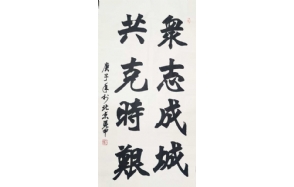 眾志成城
共克時艱
庚子年於北京